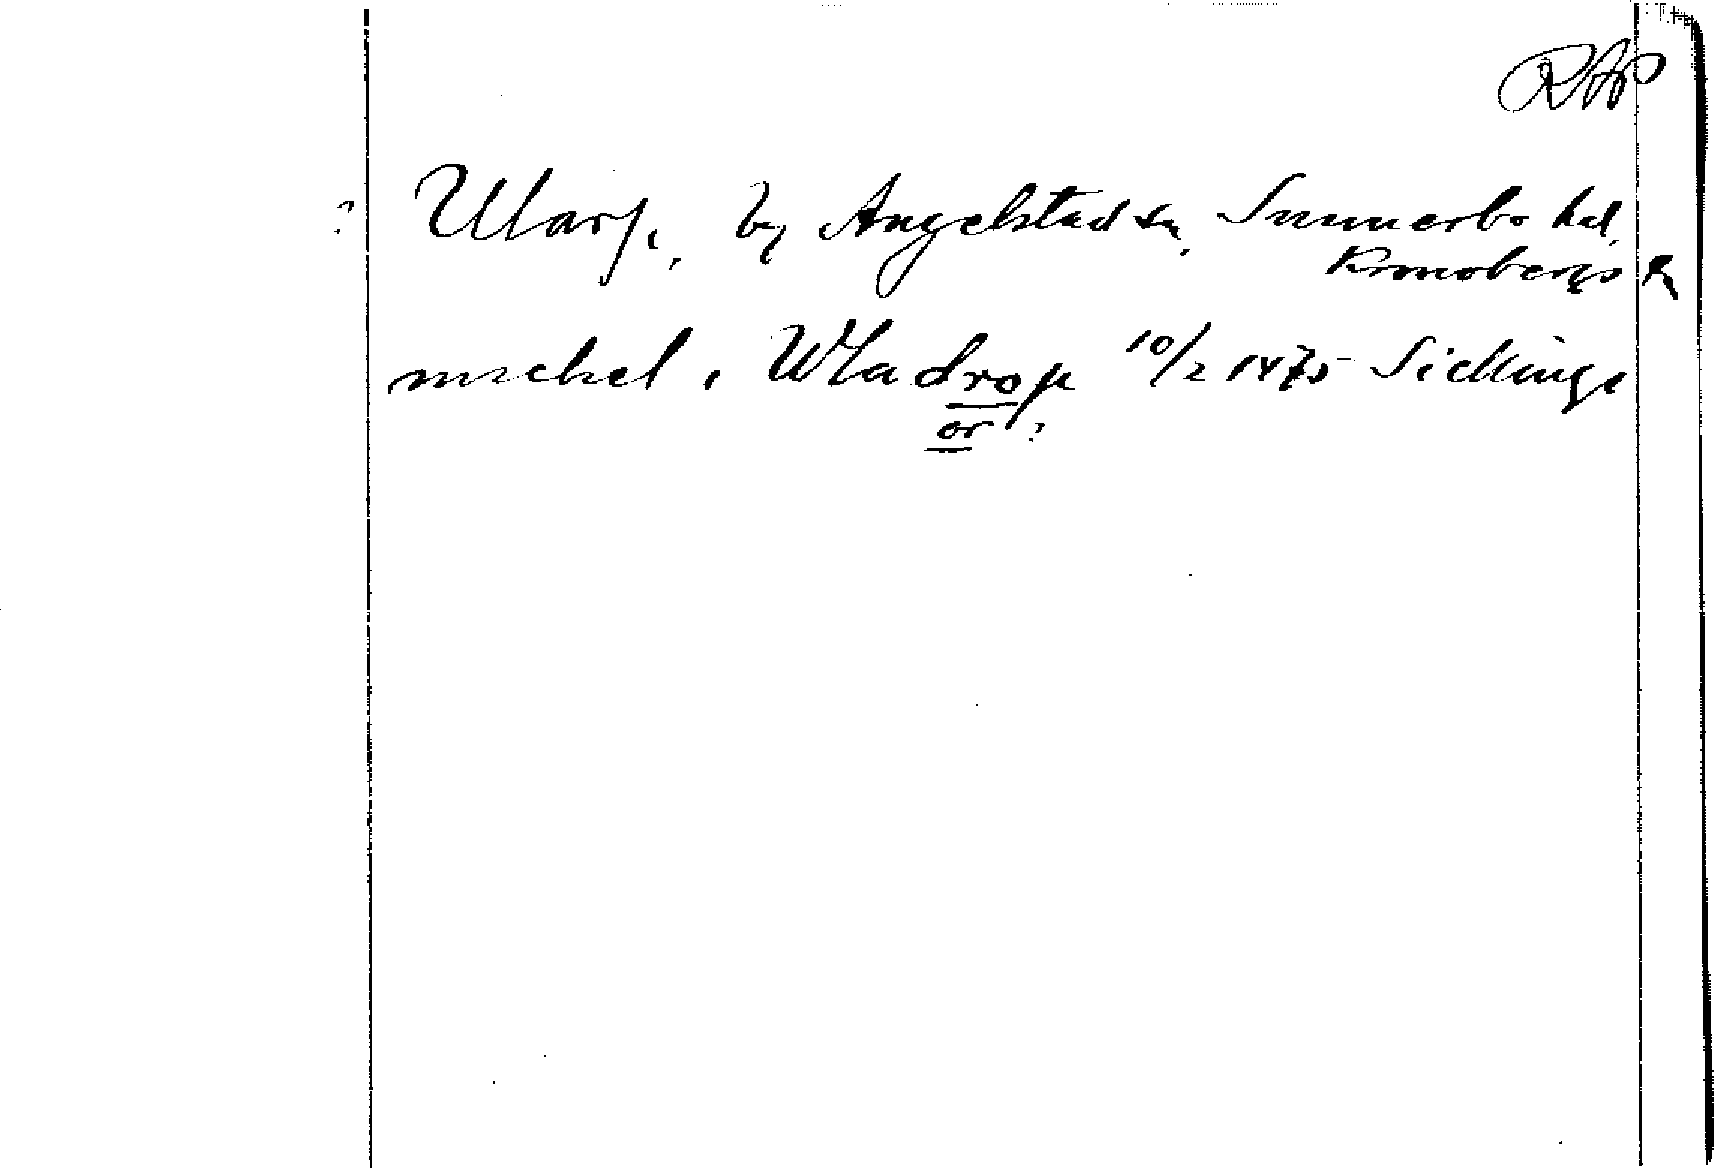 RAP
? Ularp, by Angelstad sn, Sunnerbo hd,
Kronobergs l
michel i Wladrop 10/2 1475 Sickinge
or ?